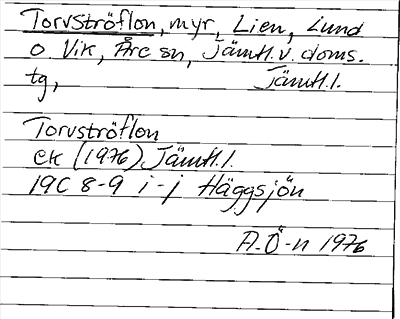 Torvströflon, myr, Lien, Lund
o Vik, Åre sn, Jämtl.v.doms.
tg, Jämtl.l.
Torvströflon
ek (1976) Jämtl.l.
19C 8-9 i-j Häggsjön
A-Ö-n 1976